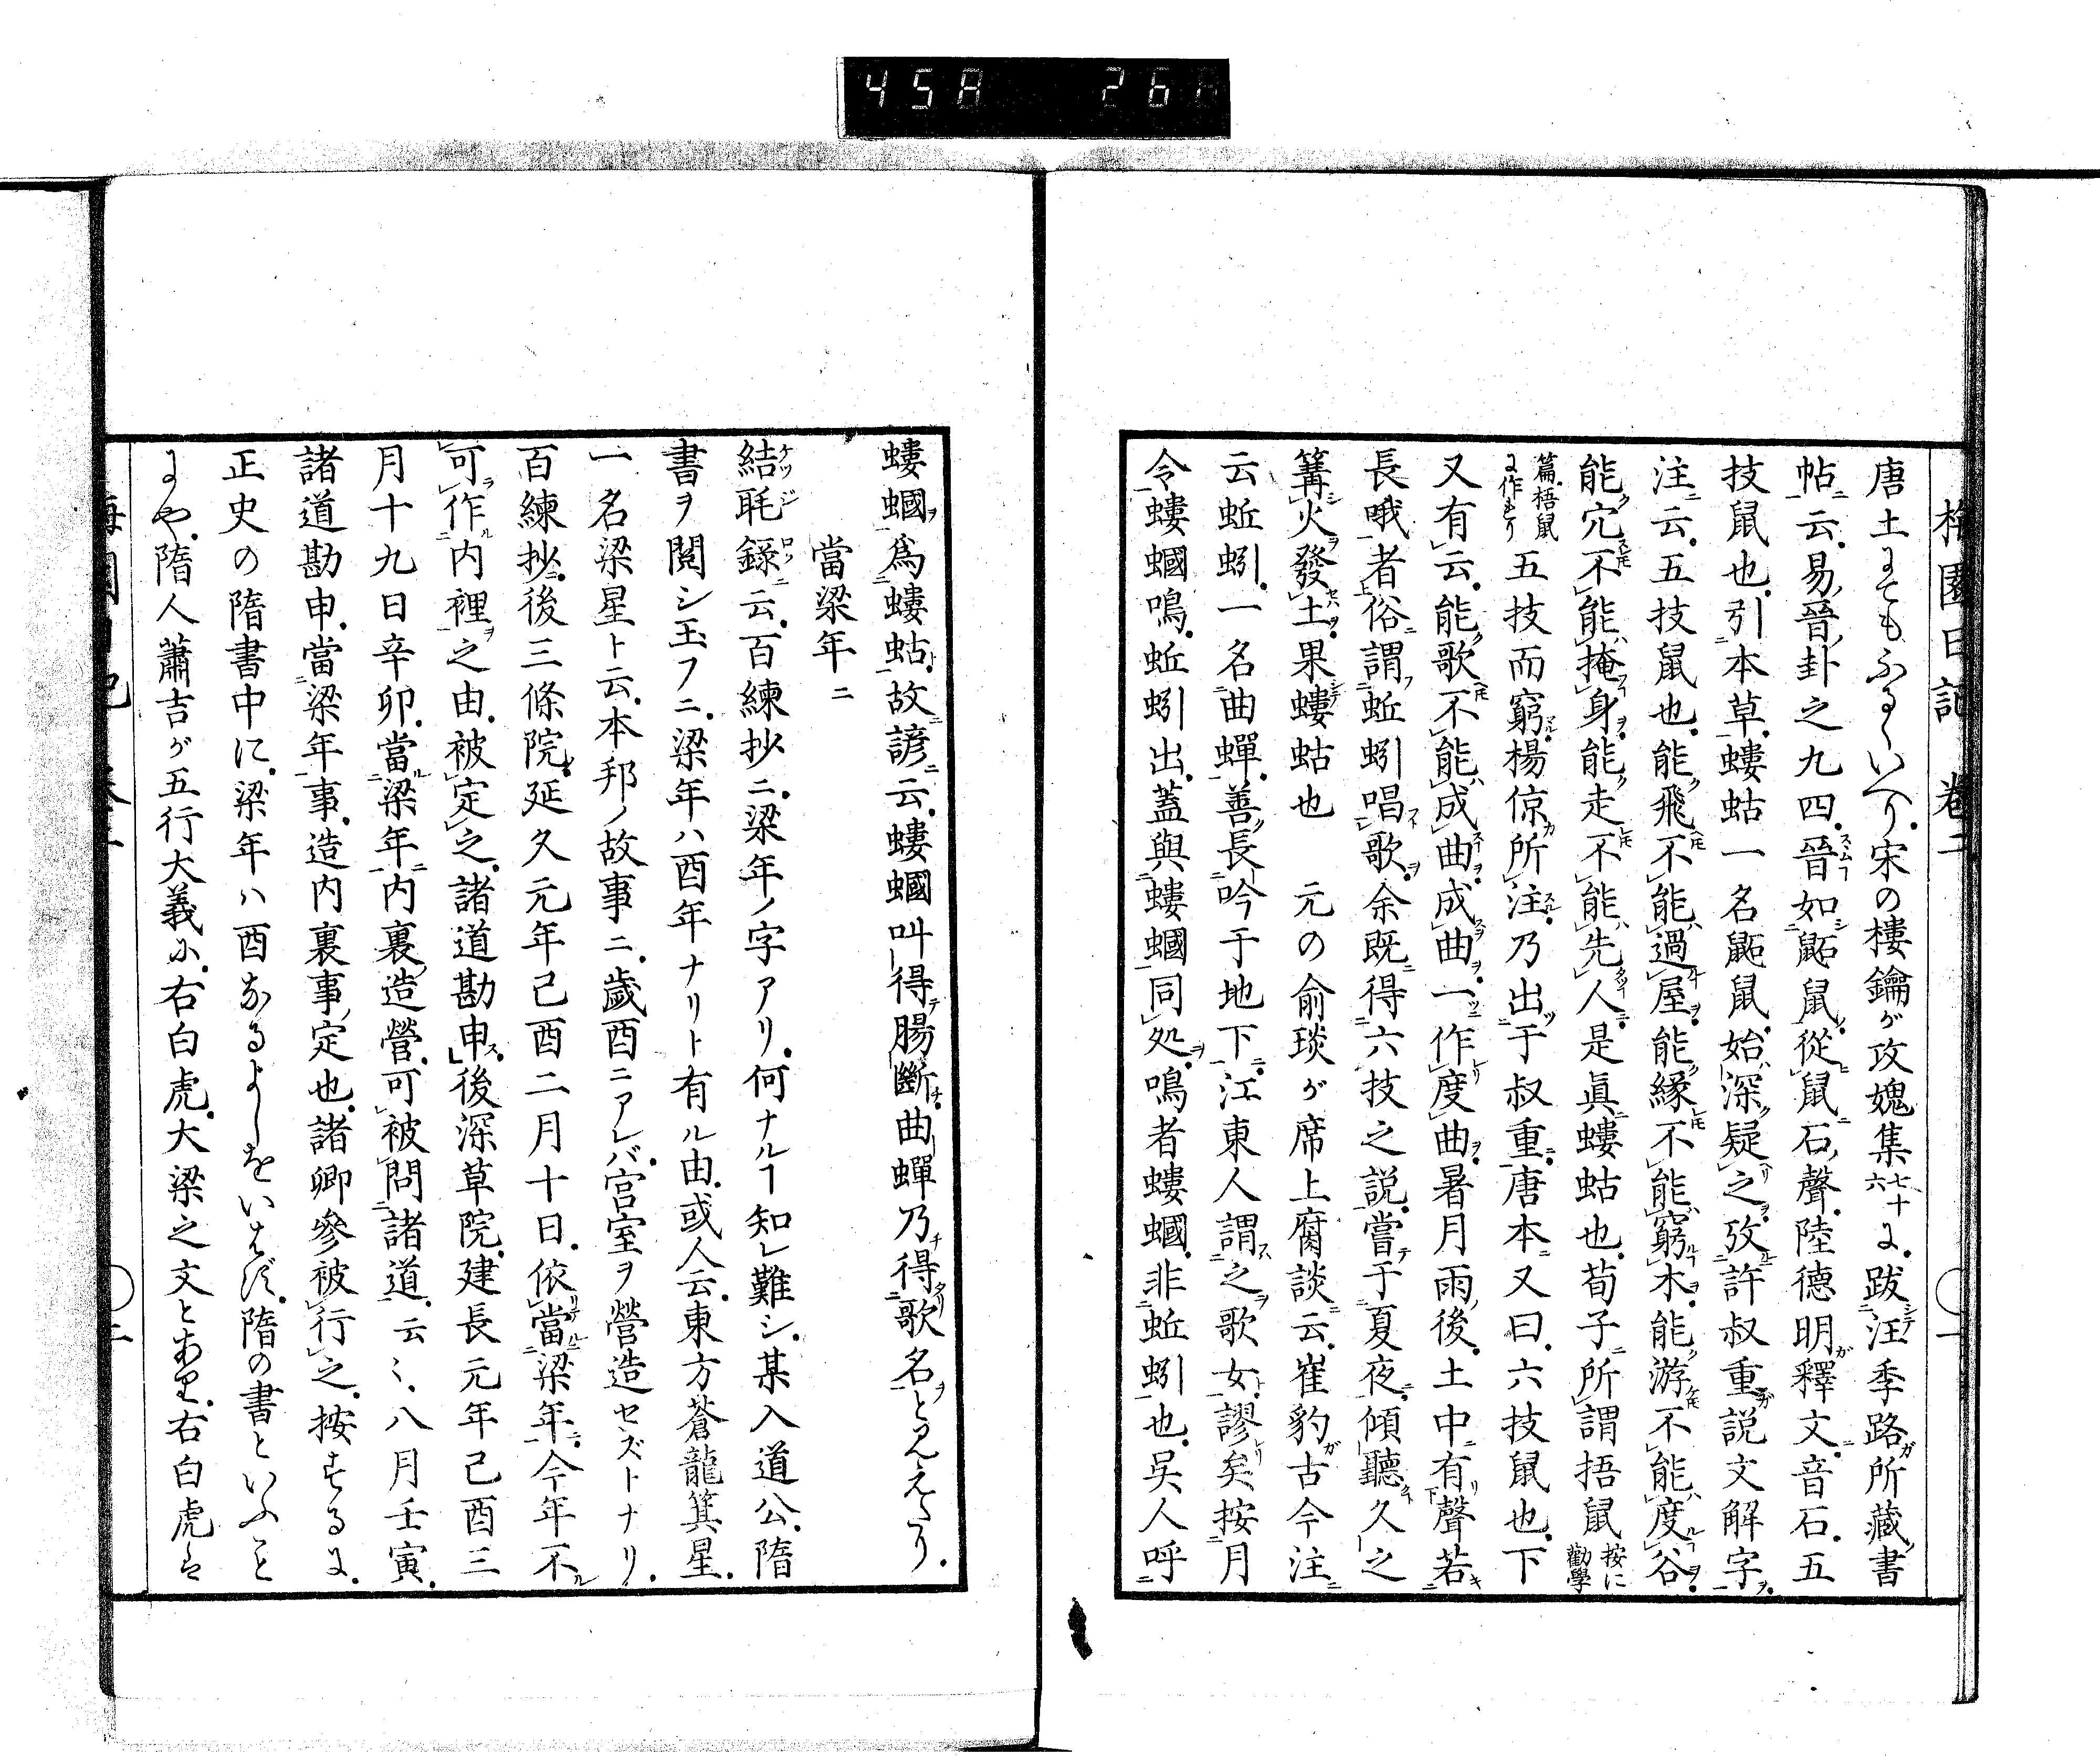 458 268
梅園日記 卷二 〇一
唐土にてもふるくいへり。宋の樓鑰が攻媿集七十六に。跋汪季路所藏書
帖云。易晉卦之九四。晉如鼫鼠。從鼠石聲。陸德明釋文。音石。五
技鼠也。引本草。螻蛄一名鼫鼠。始深疑之。攷許叔重說文解字
注云。五技鼠也。能飛不能過屋。能緣不能窮木。能游不能度谷。
能穴不能掩身。能走不能先人。是眞螻蛄也。荀子所謂捂鼠按に勸學
篇。梧鼠に作れり五技而窮。楊倞所注。乃出于叔重。唐本又曰。六技鼠也。下
又有云。能歌不能成曲。成曲一作度曲。暑月雨後。土中有聲若
長哦者。俗謂蚯蚓唱歌。余既得六技之說。嘗于夏夜。傾聽久之
篝火發土。果螻蛄也 元の俞琰が席上腐談云。崔豹古今注
云蚯蚓。一名曲蟺。善長吟于地下。江東人謂之歌女。謬矣按月
令螻蟈鳴。蚯蚓出。蓋與螻蟈同処。鳴者螻蟈。非蚯蚓也。吳人呼
螻蟈爲螻蛄。故諺云。螻蟈叫得腸斷。曲蟺乃得歌名と見えたり。
當梁年二
結毦錄云。百練抄ニ。梁年ノ字アリ。何ナルヿ知レ難シ。某入道公。隋
書ヲ閱シ玉フニ。梁年ハ酉年ナリト有ル由。或人云。東方蒼龍箕星。
一名梁星ト云。本邦ノ故事ニ。歲酉ニアレバ。宮室ヲ營造セズトナリ。
百練抄。後三條院。延久元年己酉二月十日。依當梁年。今年不
可作內裡之由。被定之。諸道勘申。後深草院。建長元年己酉三
月十九日辛卯。當梁年內裏造營。可被問諸道。云〻。八月壬寅。
諸道勘申。當梁年事。造內裏事定也。諸卿參被行之。按ずるに。
正史の隋書中に。梁年ハ酉なるよしをいはず。隋の書といふこと
にや。隋人蕭吉が五行大義に。右白虎。大梁之文とあり。右白虎は
梅園日記 卷二 〇二